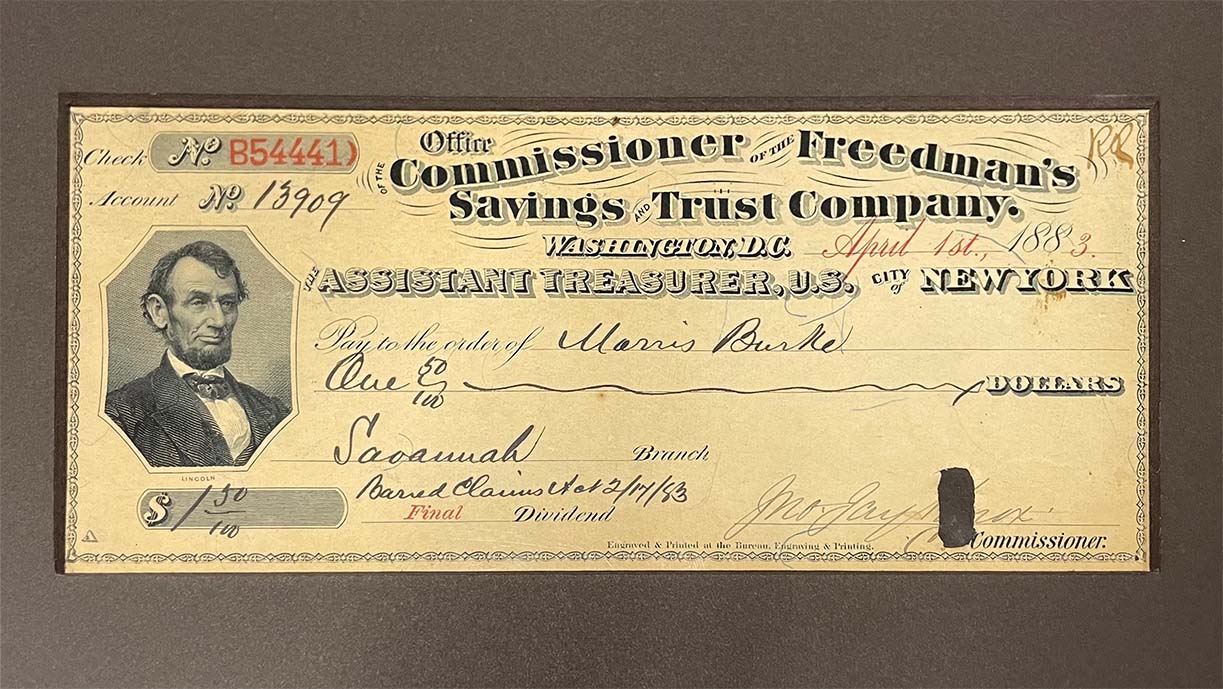 Check No. B54441)
Account No. 13909
Office
OF THE Commissioner OF THE Freedman's
Savings AND Trust Company.
WASHINGTON, D.C. April 1st., 1883.
THE ASSISTANT TREASURER, U.S. CITY of NEW YORK
Pay to the order of Morris Burke
One 50/100 DOLLARS
LINCOLN
Savannah Branch
$ 1 50/100
Barred Claims Act 2/17/83
Final Dividend
Jno. Jay Knox
Engraved & Printed at the Bureau, Engraving & Printing.
Commissioner.